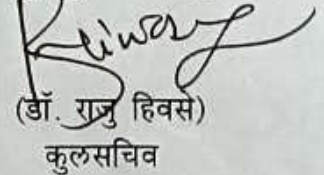 (डॉ. राजु हिवसे)
कुलसचिव